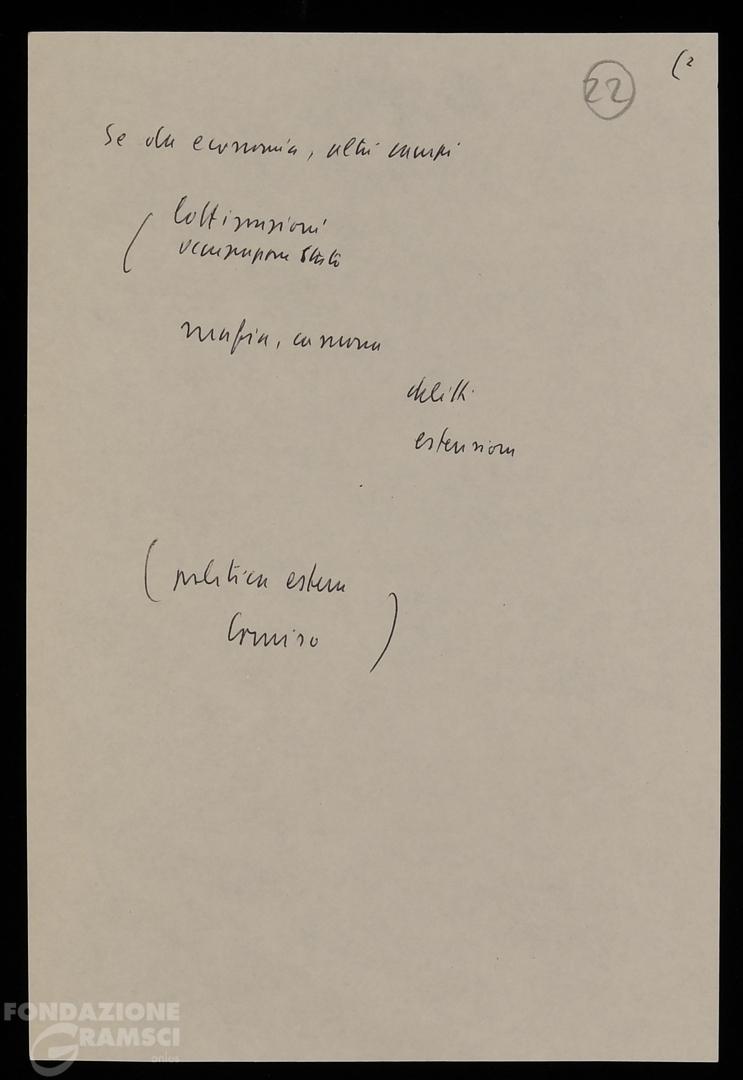 (2
22
Se da economia, altri campi
(lottizzazioni
occupazione Stato
mafia, camorra
delitti
estensione
(politica estera
Comiso)
FONDAZIONE
GRAMSCI
onlus